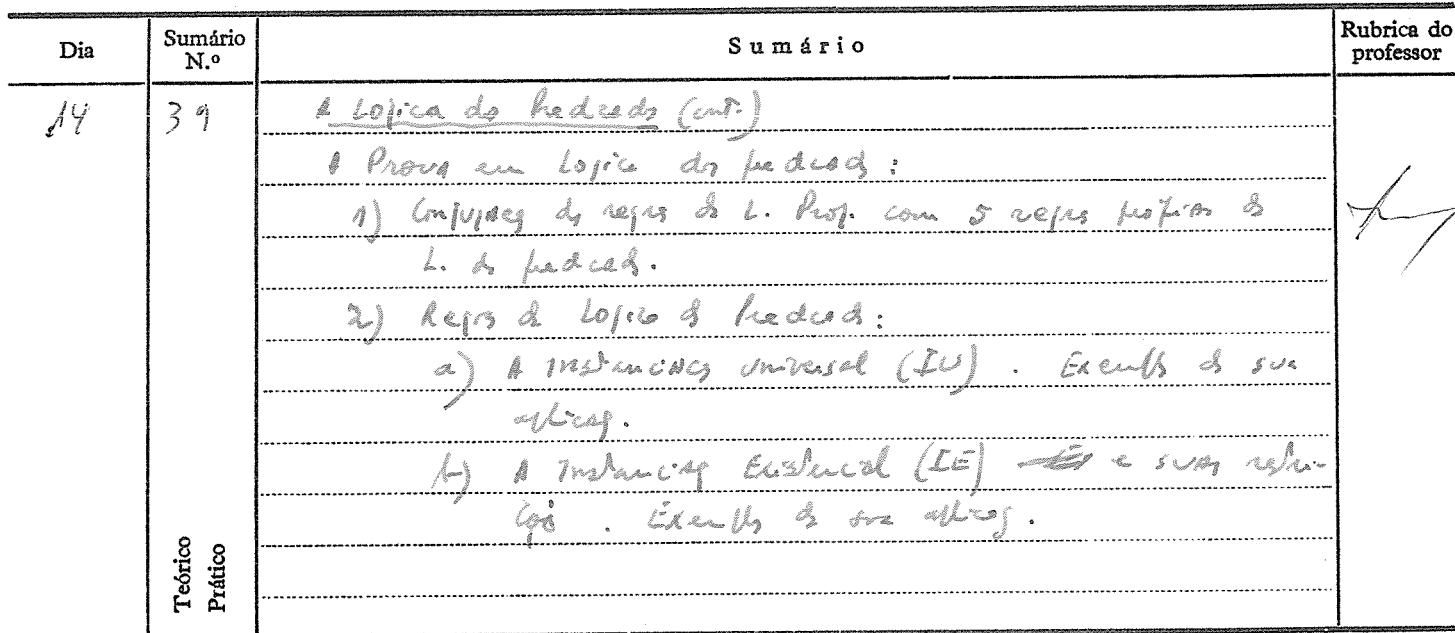 Dia
Sumário N.º
Sumário
Rubrica do professor
14
39
A Logica do Predicado (cont.)
A Prova em Logica dos predicados:
1) Conjunção das regras da L. Prop. com 5 regras próprias da
L. dos predicados.
2) Regras da Logica dos Predicados:
a) A Instanciação Universal (IU). Exemplos da sua
aplicação.
b) A Instanciação Existencial (IE) e suas restri-
ções. Exemplos da sua aplicação.
Teórico
Prático